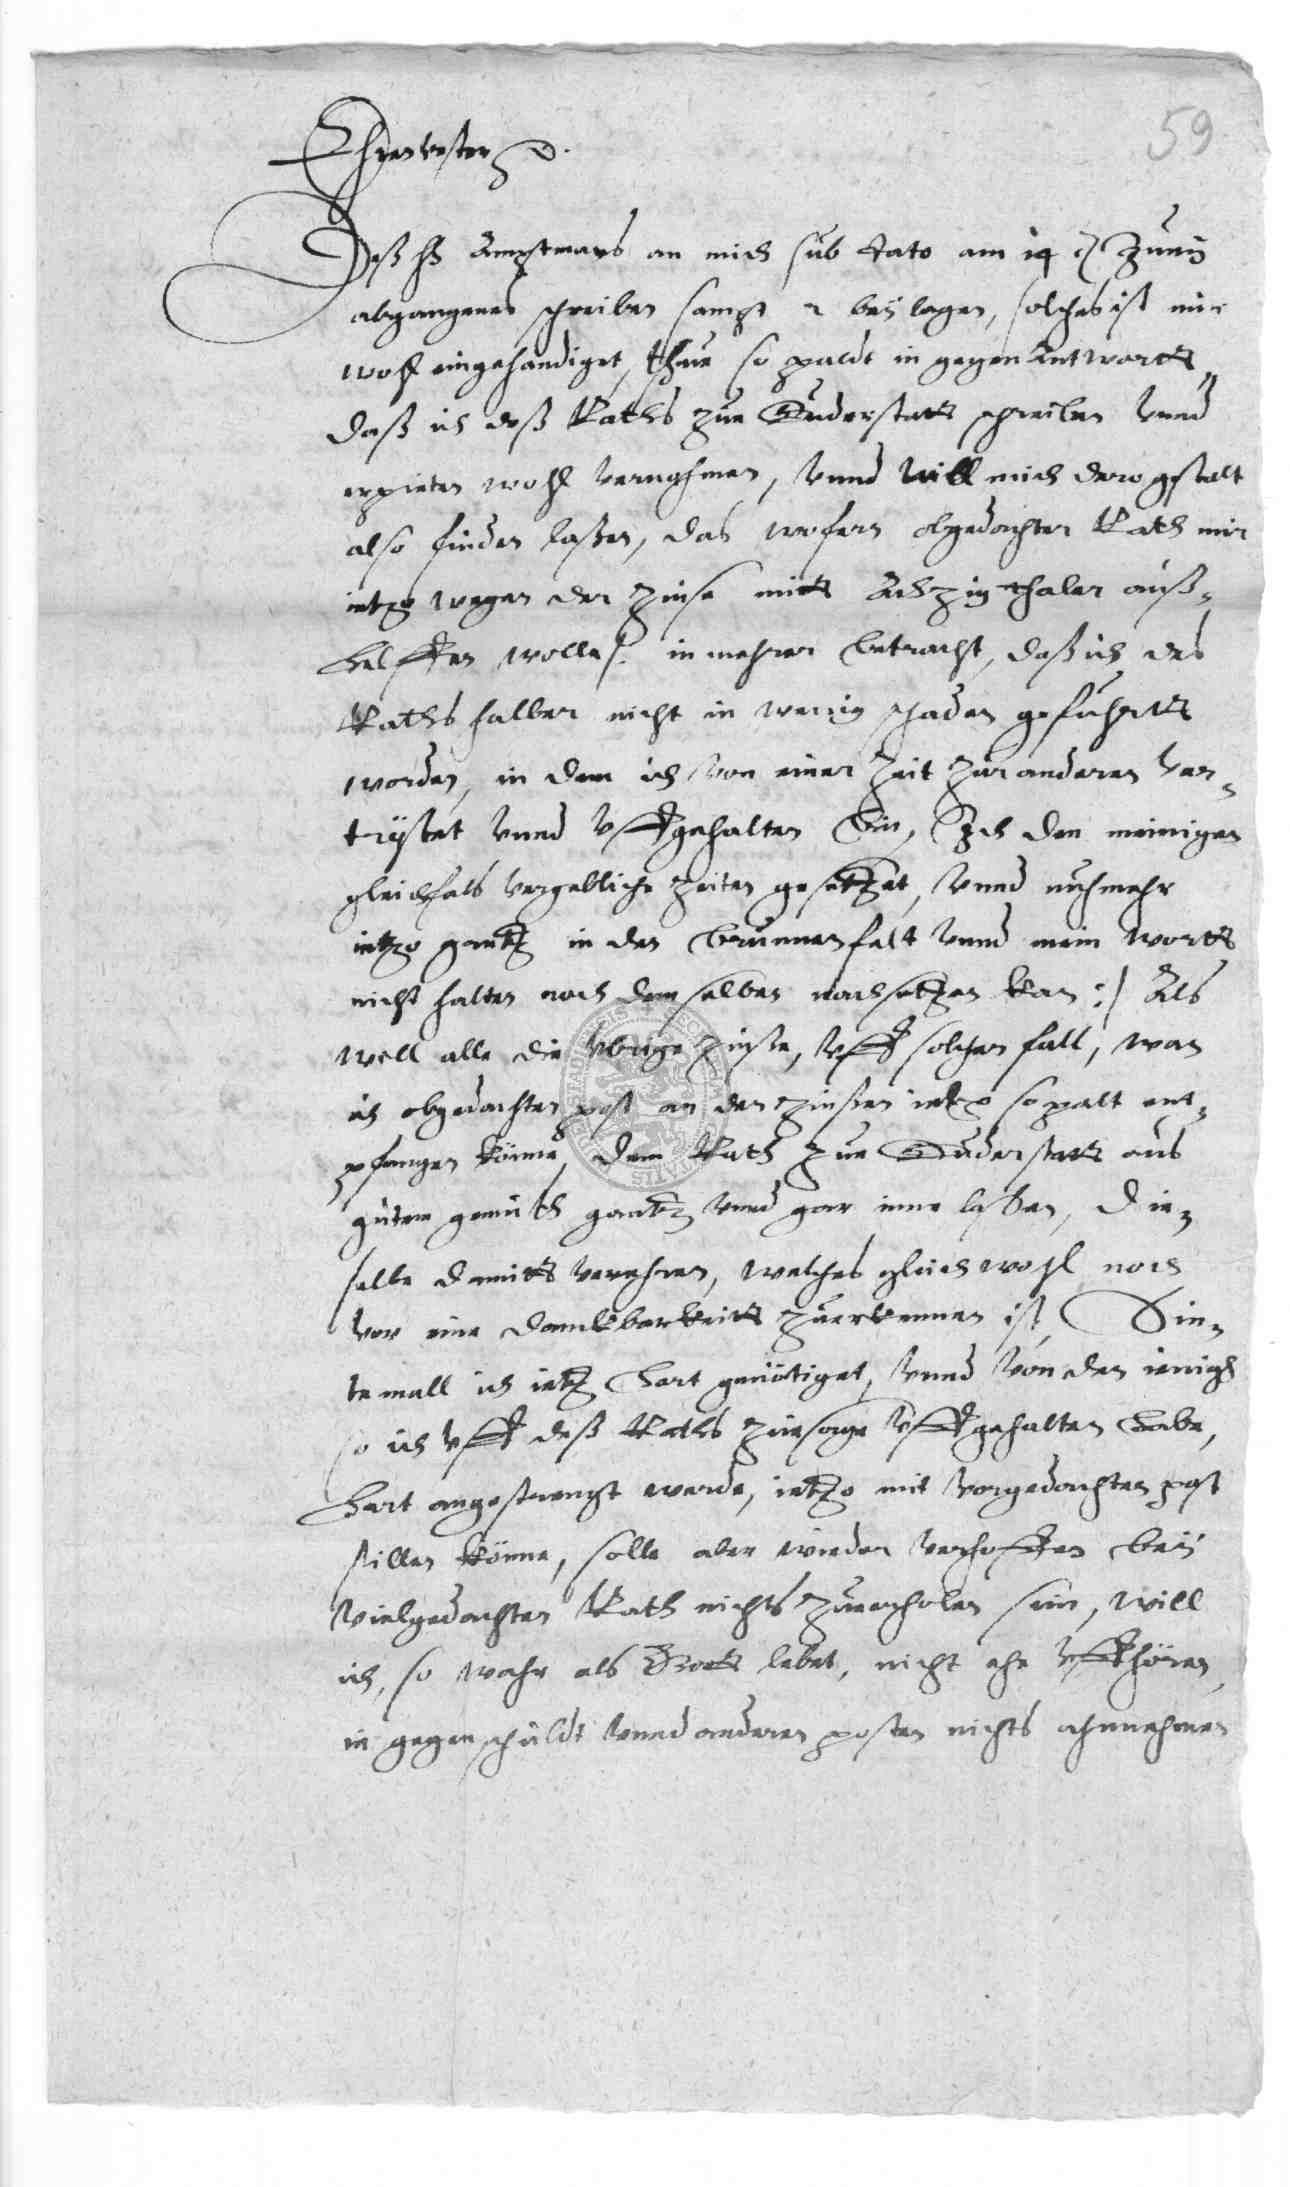 59
Ehrenvester
Deß H Amptmans an mich sub dato am 14 Junij
abgangenes schreiben sampt 2 beylagen, solches ist mir
wohl eingehandiget, thue so paldt in gegen Antwortt
daß ich deß Raths zue Duderstatt schreiben vnnd
erpieten wohl vernohmen, vnnd will mich dero gstalt
also finden laßen, das wofern obgedachter Rath mir
ietzo wegen der Zinse mitt Achzig thaler auß-
helffen wolle /: in mehrer betracht, daß ich des
Raths halber nicht in wenig schaden gefuhrtt
worden, in dem ich von einer Zeit zur anderen ver-
tröstet vnnd vffgehalten bin, Ich den meinigen
gleichfals vergebliche Zeiten gesetzet, vnnd nuhmehr
ietzo gantz in den brunnen felt vnnd mein wortt
nicht halten noch dem selben nachsetzen kan :/ Als
will alle die vbrige Zinße, vff solchen fall, wan
ich obgedachten post an den Zinßen ietzo so palt ent-
pfangen könne, dem Rath zue Duderstatt aus
gutem gemuth gantz vnnd gar inne laßen, Die-
selbe damitt verehren, welches gleichwohl noch
vor eine danckbarkeitt zuerkennen ist, Sin-
temall ich ietz hart genötiget, vnnd von den ienigen
so ich vff deß Raths zuesage vffgehalten habe,
hart angestrengt werde, ietzo mit vorgedachten post
stillen könne, solle aber wieder verhoffen bey
vielgedachten Rath nichts zuerholen sein, will
ich, so wahr als Gott lebet, nicht ehe vffhören,
in gegen schuldt vnnd anderen posten nichts ahnnehmen